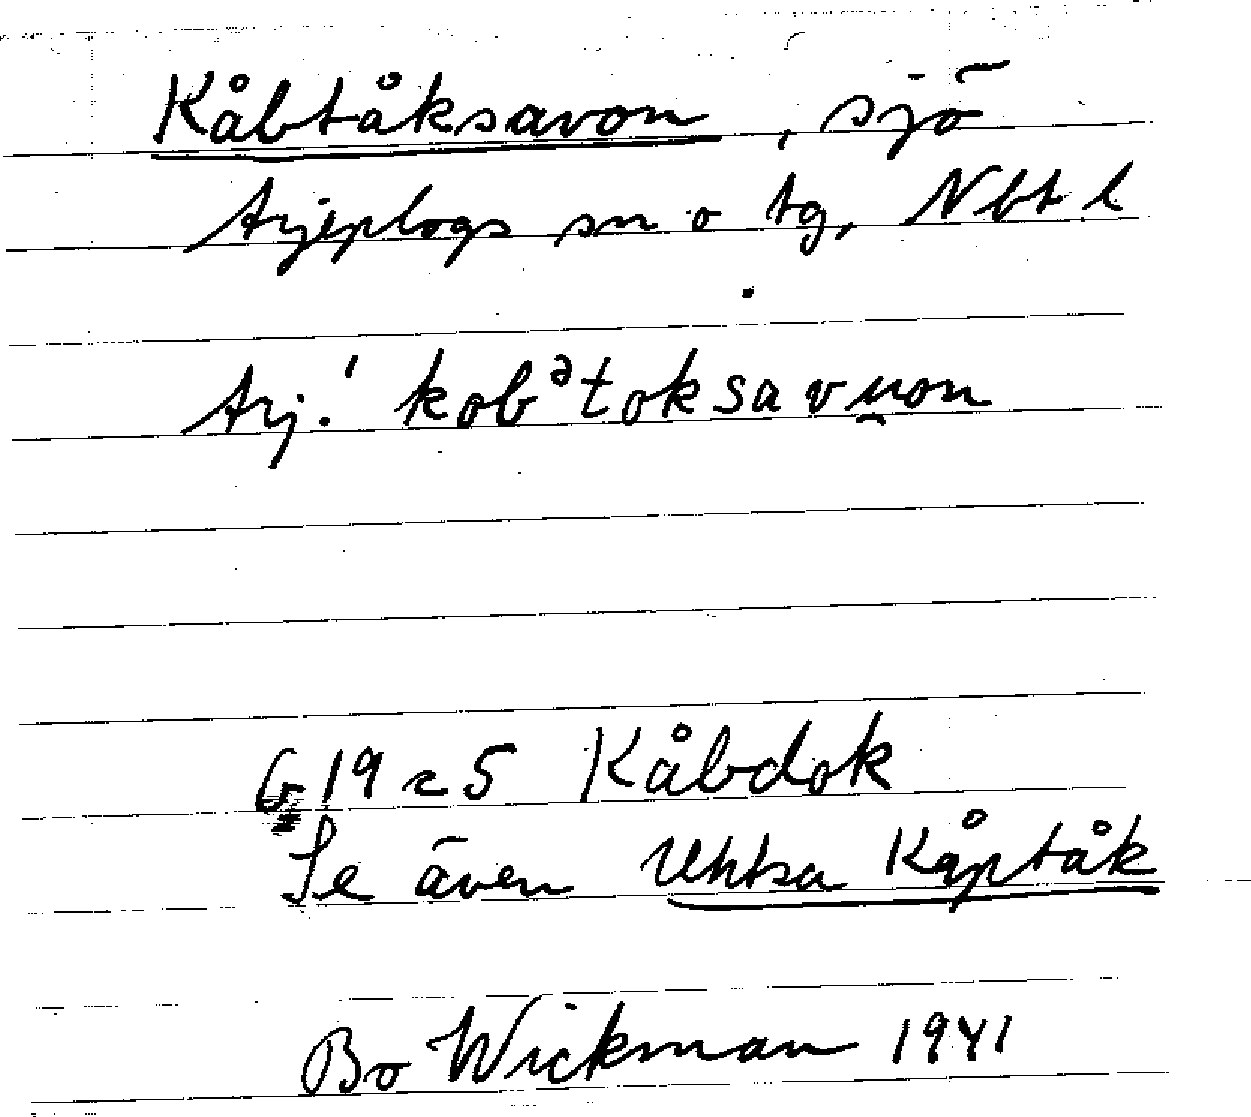 Kåbtåksavon, sjö
Arjeplogs sn o tg, Nbt l
Arj. ˈkobᵊtoksavu̯on
G 19 c 5 Kåbdok
Se även Uhtsa Kåptåk
Bo Wickman 1941